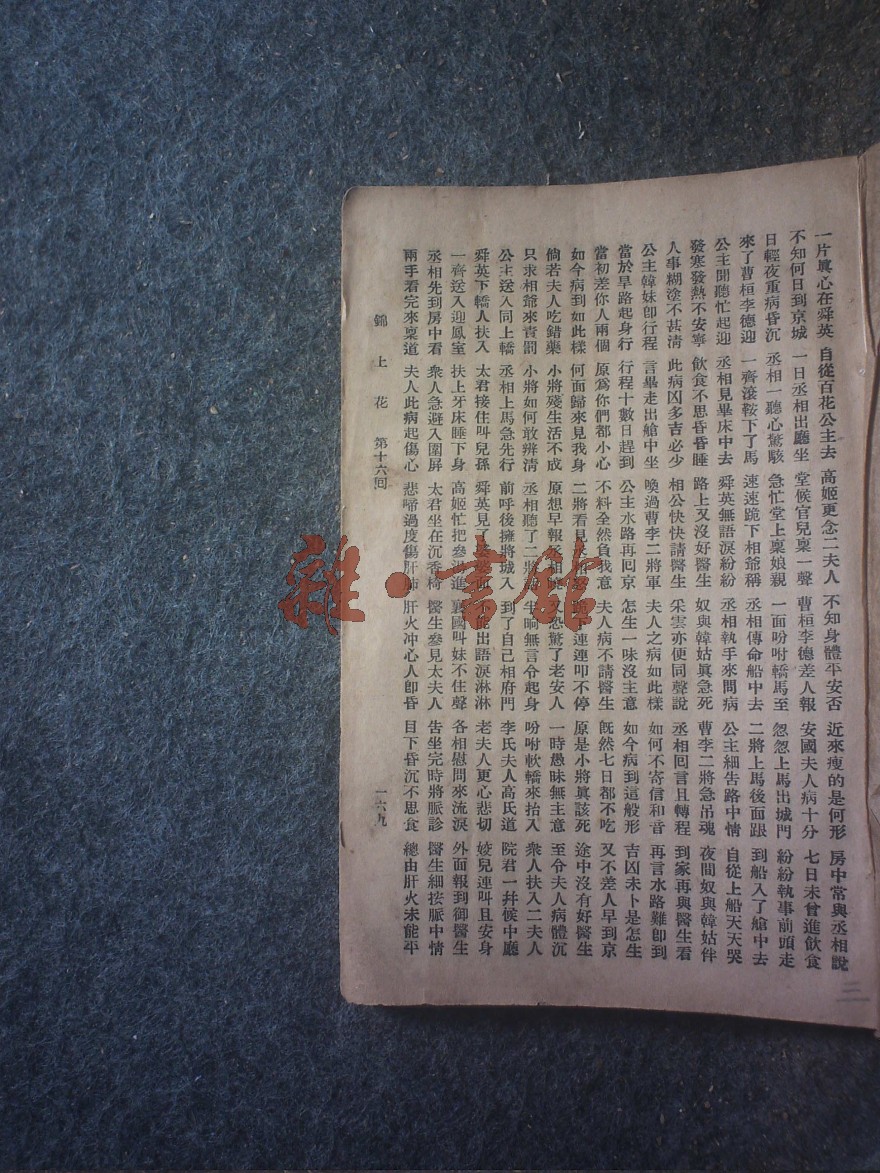 一片眞心在舜英 自從百花公主去 高姬更念二夫人 不知身體平安否 近來瘦的是何形 房中常與丞相說
不知何日到京城 一日丞相出廳坐 堂候官兒稟一聲 曹桓李德差人報 安國夫人病十分 七日未曾進飲食
日輕夜重病昏沉 丞相一聽心驚駭 急忙堂上稟娘親 一面吩咐轎馬至 忽忽上馬出城門 紛紛執事前頭走
來了曹桓李德迎 一齊滾鞍下了馬 速速跪下相爺稱 丞相傳命船中去 二將上馬後面跟 到船入了艙中去
公主聞聽忙起迎 丞相見畢床中去 舜英無語淚紛紛 丞相執手來問病 公主細告路中情 自從上船天天哭
發寒發熱不安寧 飲食不思昏昏睡 路上又沒好醫生 奴與韓姑眞急死 曹李二將急吊魂 夜間奴與韓姑伴
人事糊塗不甚清 此病凶多吉必少 相公快快請醫生 采雲亦便同聲說 丞相回言且轉程 到家再與醫生看
公主韓妹卽行程 言畢走出艙中坐 喚過曹李二將軍 夫人之病如此樣 如何不寄信和音 再言水路難卽到
當於旱路起身行 行程十數日趕到 公主水路再回京 怎生一味沒主意 如今病到這般形 吉凶未卜是怎生
當初差你人兩個 原爲你們都小心 不料全然負我意 夫人病不請醫生 旣然七日都不吃 又不差人早到京
如今病到如此樣 何面歸來見我身 二將看見 下連連叩不停 原是小將眞該死 途中沒有好醫生
倘若夫人吃錯藥 小將殘生活不成 原想早報丞相 又恐驚了老安人 一時愚昧無主意 至令夫人病體沉
只求相爺來責罰 小將如何敢辨清 丞相聽了二將 半晌無言令起身 吩咐軟轎來抬入 衆人扶入二夫人
公主送入同上轎 丞相上馬急先行 前呼後擁將城入 到了自己相府門 李氏夫人高氏道 院君一幷候中廳
舜英下轎人扶入 太君接住叫兒孫 舜英見了婆婆面 不能出語淚淋淋 老夫人更心悲切 姣兒連叫且安身
一齊送入迎鳳室 扶上牙床睡下身 高姬忙把參湯進 襄國叫妹不住聲 各相慰問來流淚 外面報到御醫生
丞相先到房中看 衆人急避入圍屏 太君坐在沉香椅 醫生參見太夫人 告坐完時將脈診 醫生細按脈中情
兩手看完來稟道 夫人此病起傷心 悲啼過度傷肝肺 肝火冲心人卽昏 目下昏沉不思食 總由肝火未能平
錦上花 第十六回 一六九
三
雜·書館